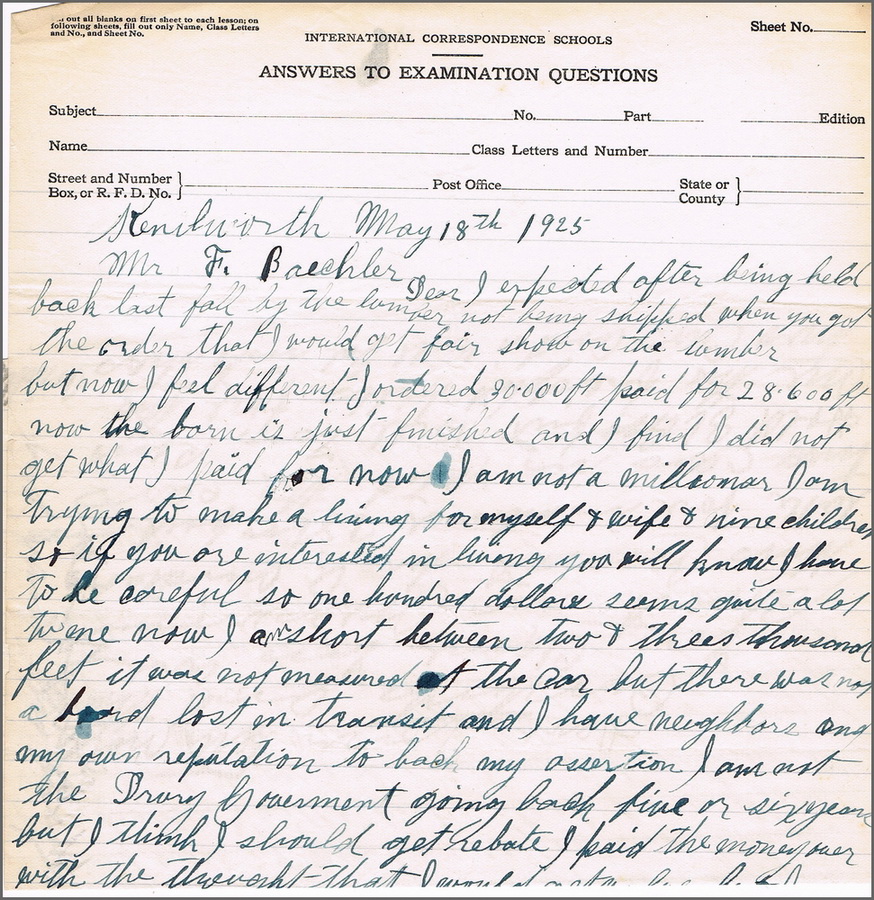 out all blanks on first sheet to each lesson; on
following sheets, fill out only Name, Class Letters
and No., and Sheet No.
Sheet No.
INTERNATIONAL CORRESPONDENCE SCHOOLS
ANSWERS TO EXAMINATION QUESTIONS
Subject No. Part Edition
Name Class Letters and Number
Street and Number
Box, or R. F. D. No. Post Office State or
County
Kenilworth May 18th 1925
Mr F. Baechler
Dear I expected after being held
back last fall by the lumber not being shipped when you got
the order that I would get fair show on the lumber
but now I feel different I ordered 30.000 ft paid for 28.600 ft
now the barn is just finished and I find I did not
get what I paid for now I am not a millionar I am
trying to make a living for myself & wife & nine children
so if you are interested in living you will know I have
to be careful so one hundred dollars seems quite a lot
to me now I am short between two & threes thousand
feet it was not measured at the car but there was not
a board lost in transit and I have neighbors and
my own reputation to back my assertion I am not
the Drury Goverment going back five or six years
but I think I should get rebate I paid the money over
with the thought that I would